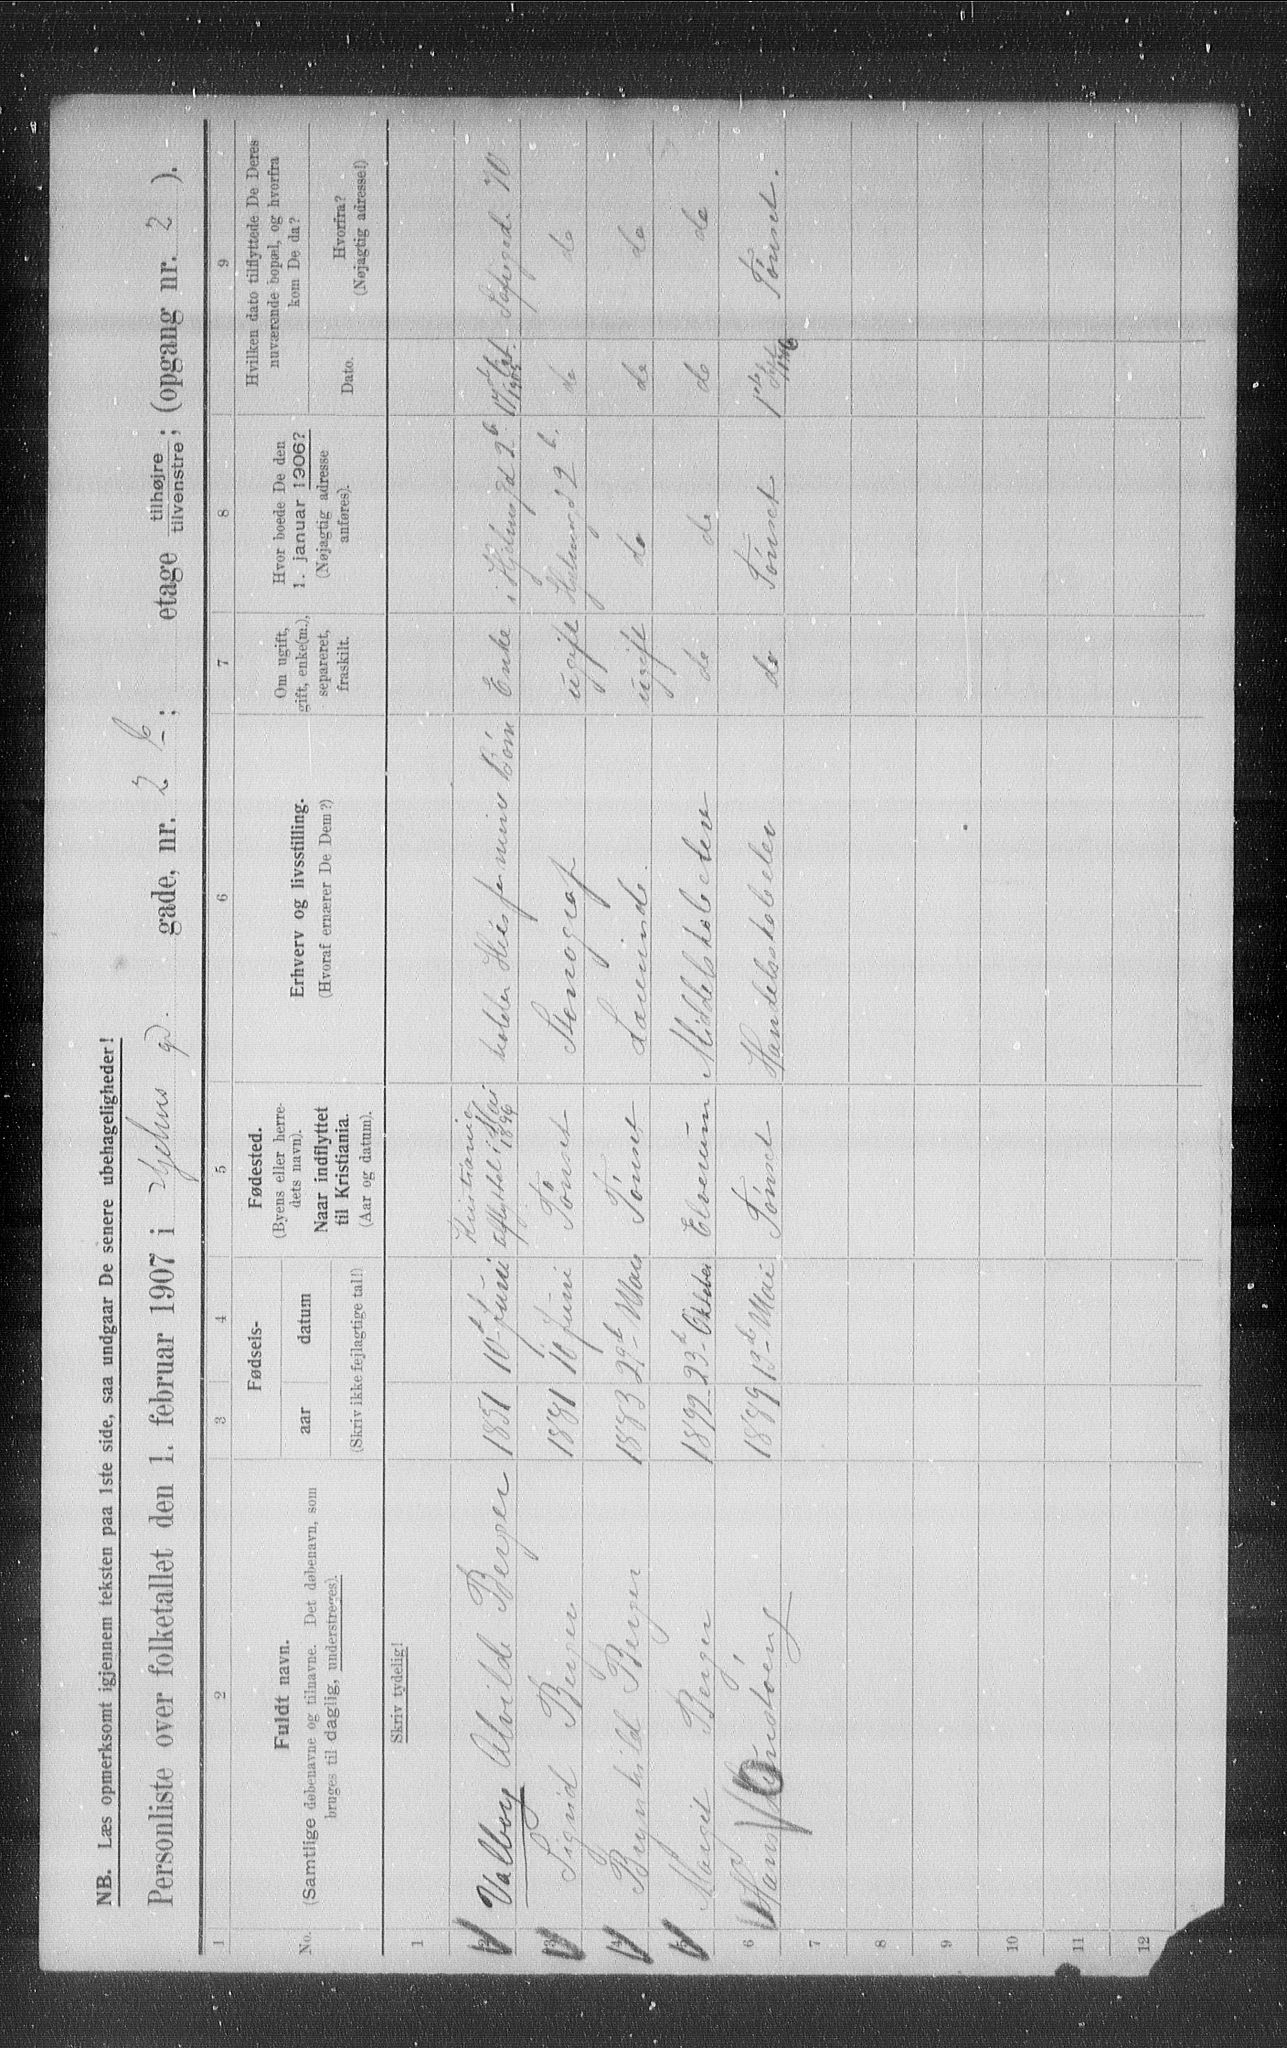 NB. Læs opmerksomt igjennem teksten paa 1ste side, saa undgaar De senere ubehageligheder!
Personliste over folketallet den 1. februar 1907 i Hjelms gd. gade, nr. 2 b; etage tilhøjre tilvenstre; (opgang nr. 2).
1 2 3 4 5 6 7 8 9
No. Fuldt navn. (Samtlige døbenavne og tilnavne. Det døbenavn, som bruges til daglig, understreges).
Fødsels- aar datum (Skriv ikke fejlagtige tal!)
Fødested. (Byens eller herredets navn). Naar indflyttet til Kristiania. (Aar og datum).
Erhverv og livsstilling. (Hvoraf ernærer De Dem?)
Om ugift, gift, enke(m.), separeret, fraskilt.
Hvor boede De den 1. januar 1906? (Nøjagtig adresse anføres).
Hvilken dato tilflyttede De Deres nuværende bopæl, og hvorfra kom De da?
Dato. Hvorfra? (Nøjagtig adresse!)
Skriv tydelig!
1
2 Valborg Alvilde Berger 1851 10 Juni Kristiania Mai 1896 holder Hus for mine Børn Enke i Hjelmsgd 2 b. 1905 70
3 Sigrid Berger 1881 10 Juni Tönset Stenograf ugift 2 b. do do
4 Brynhild Berger 1883 29 Mai Tönset Lærerinde. ugift do do do
5 Margit Berger 1892 23 Oktober Elverum Middelskoleelev do do do do
6 Hans 1889 13de Mai Tönset Handelsskoleelev do Tönset 1ste 1906 Tönset.
7
8
9
10
11
12